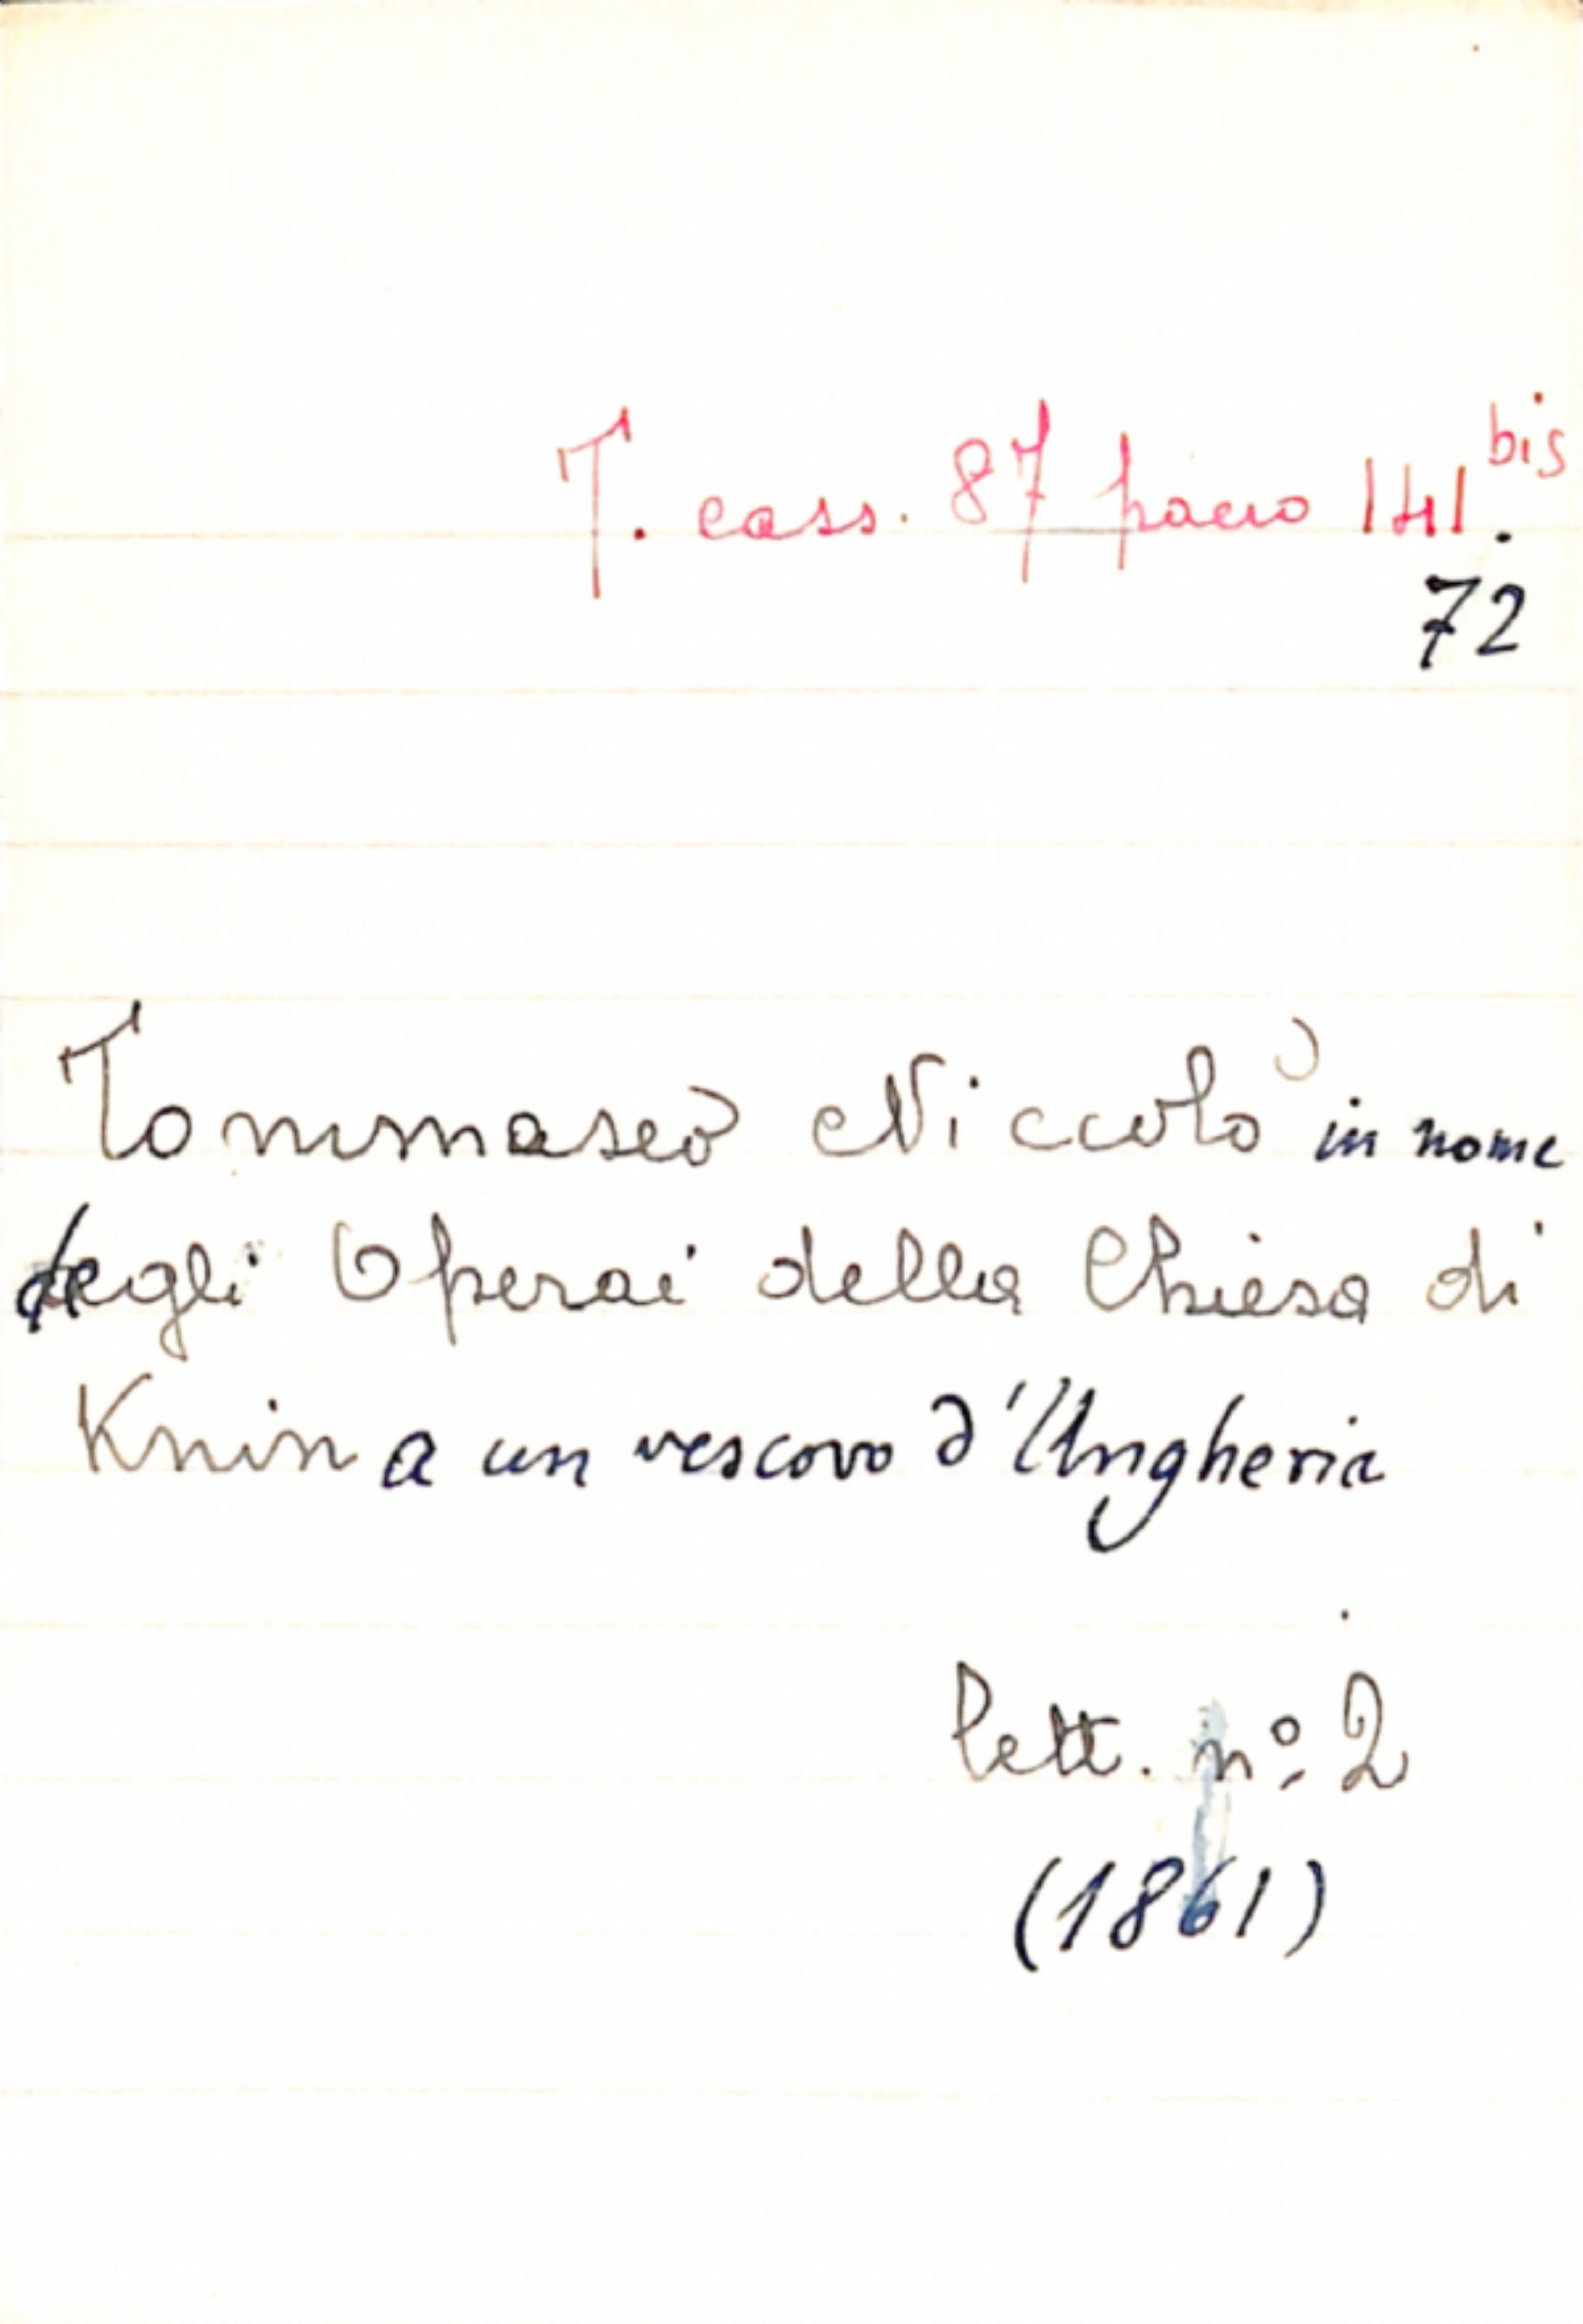 T. cass. 87 pacco 141 bis.
72
Tommaseo Niccolò in nome
degli Operai della Chiesa di
Knin a un vescovo d'Ungheria
lett. nº 2
(1861)